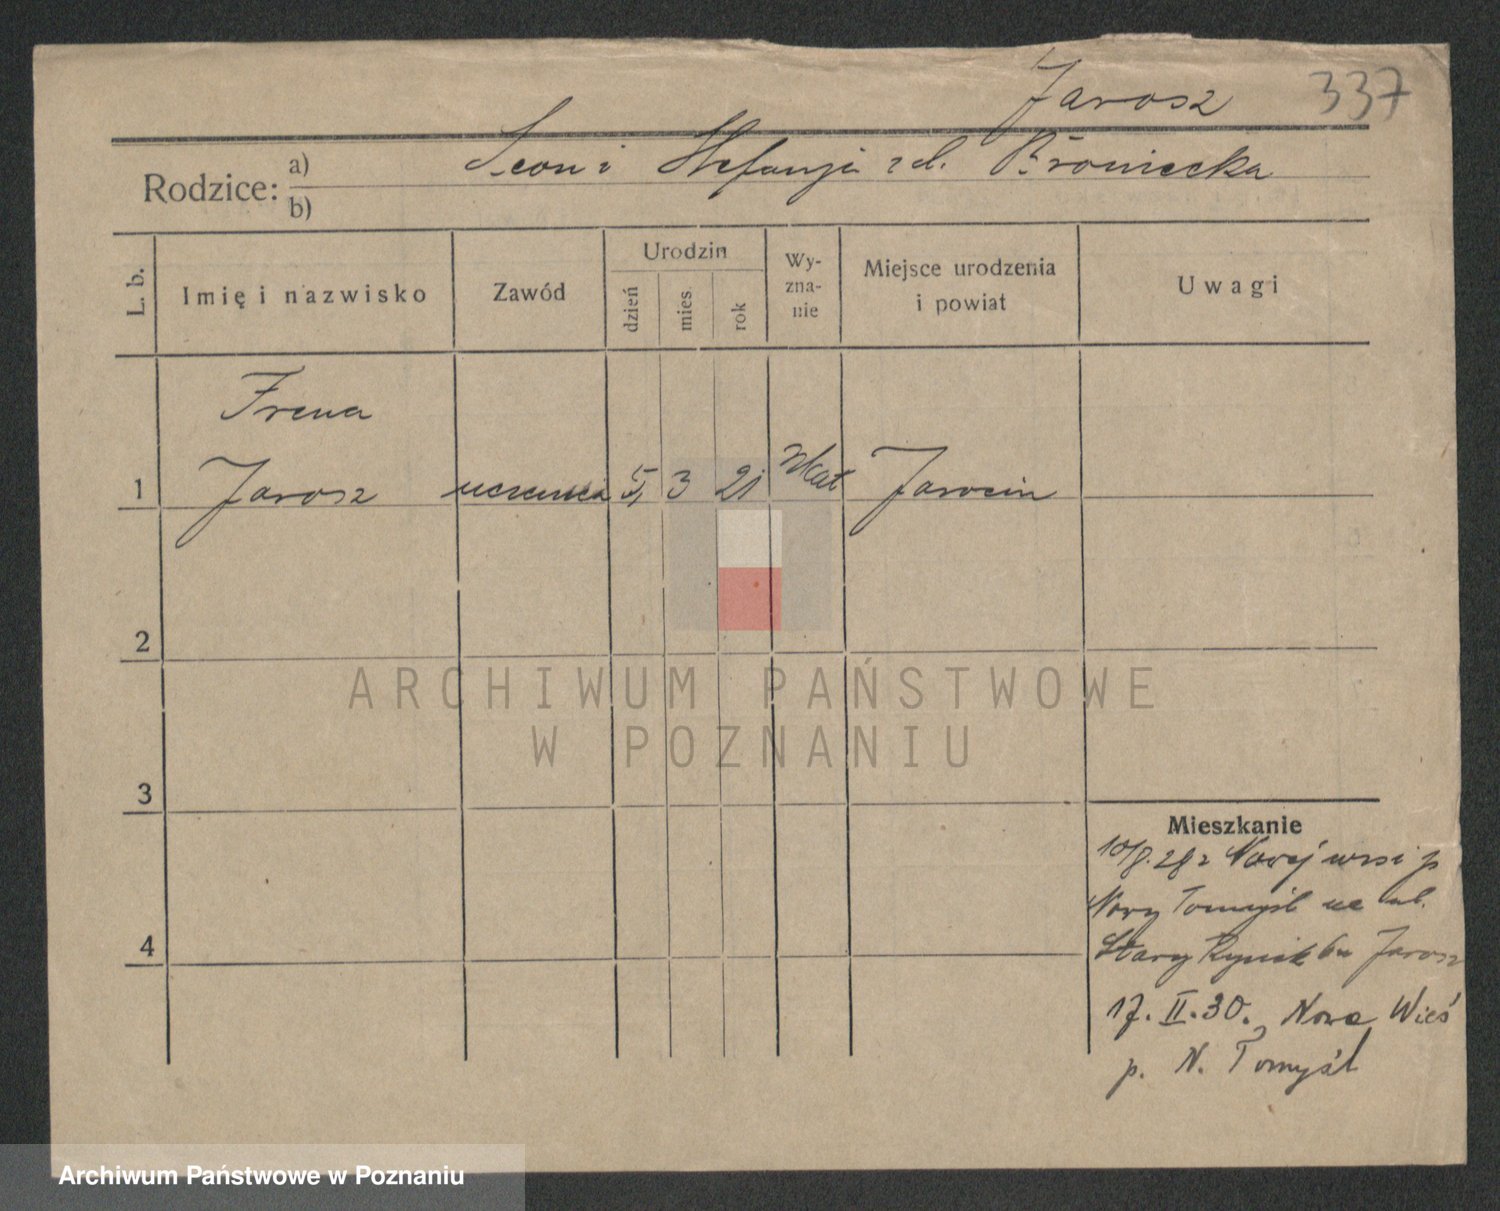 Jarosz 337
Rodzice: a) Leon i Stefanja z d. Broniecka
b)
L. b. Imię i nazwisko Zawód Urodzin dzień mies. rok Wy-zna-nie Miejsce urodzenia i powiat Uwagi
Irena
1 Jarosz uczenica 5, 3 21 rzkat Jarocin
2
ARCHIWUM PAŃSTWOWE
W POZNANIU
3
Mieszkanie
10/8. 28 z Nowej wsi p
Nowy Tomyśl na ul.
4 Stary Rynek Jarosz
17. II. 30. Nowa Wieś
p. N. Tomyśl
Archiwum Państwowe w Poznaniu